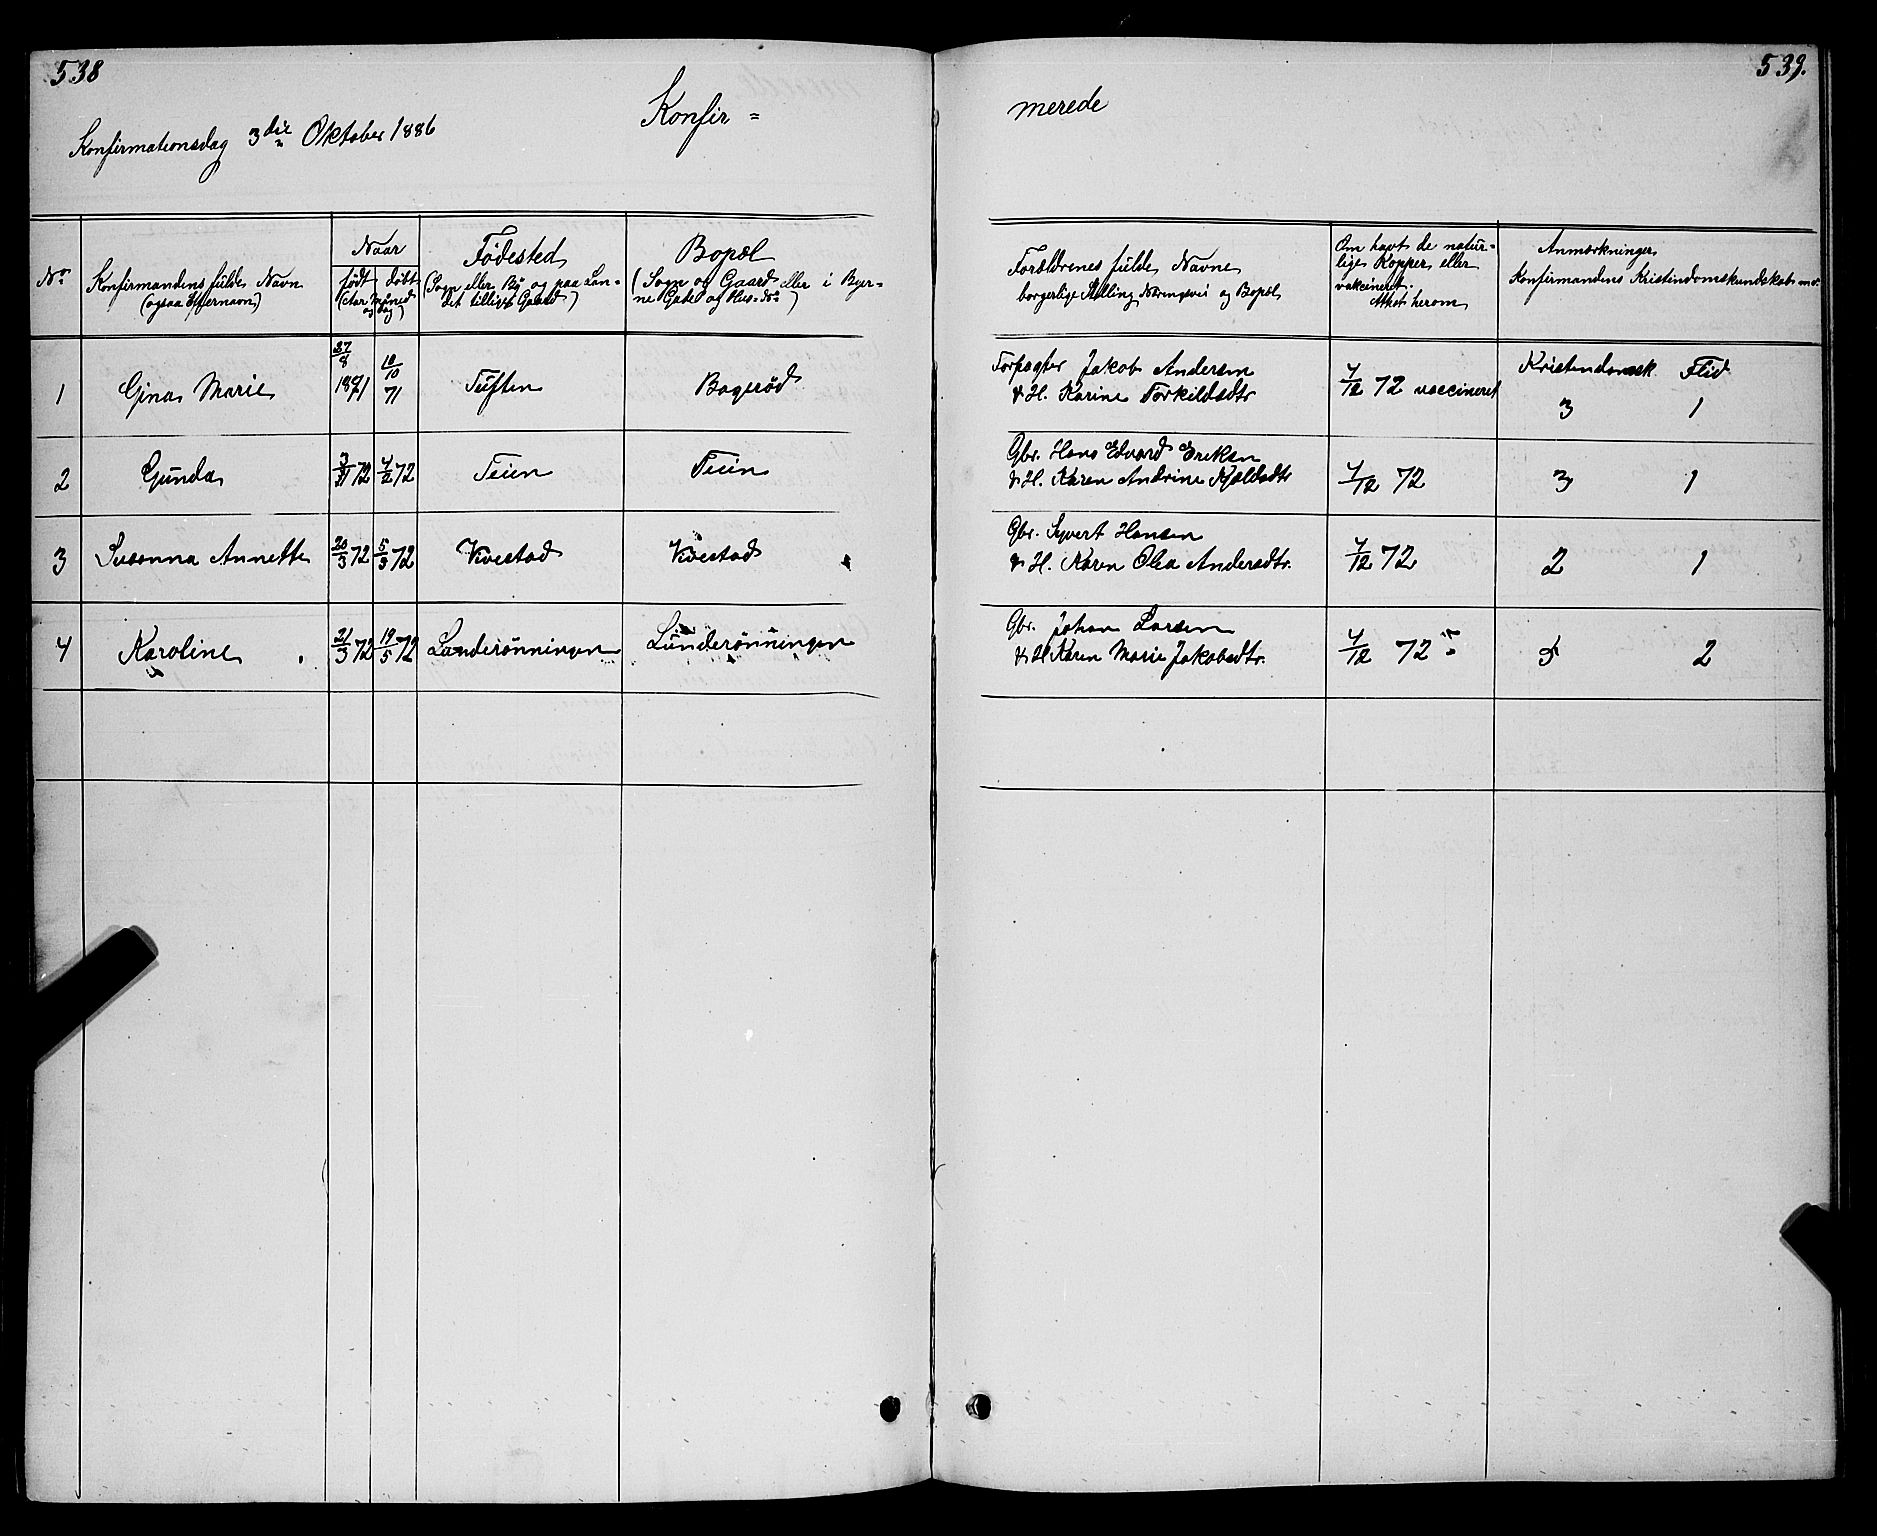 538
539.
Konfir =
merede
Konfirmationsdag 3die Oktober 1886
No
Konfirmandens fulde Navn
(ogsaa Efternavn)
Naar
født
døbt
(Aar Maaned
og Dag)
Fødested
(Sogn eller By og paa Lan-
det tillige Gaard)
Bopæl
(Sogn og Gaard eller i Byer-
ne Gade og Hus-No)
Forældrenes fulde Navne
borgerlige Stilling Næringsvei og Bopæl
Om havt de natur-
lige Kopper eller
vakcineret.
Attest herom
Anmærkninger
Konfirmandens Kristendomskundskab m.v.
1 Gina Marie 27/8 1871 10/10 71 Tuften Bogerød Forpagter Jakob Andersen
& H. Karine Torkildsdtr 4/12 72 vaccineret Kristendomsk 3 Flid 1
2 Gunda 3/1 72 4/2 72 Teien Teien Gbr. Hans Edvard Eriksen
& H. Karen Andrine Kjældsdtr 4/12 72 3 1
3 Susanna Annette 20/3 72 5/5 72 Kvestad Kvestad Gbr. Syvert Hansen
& H. Karen Olea Andersdtr. 4/12 72 2 1
4 Karoline 21/3 72 19/5 72 Lunderønningen Lunderønningen Gbr. Johan Larsen
& H Karen Marie Jakobsdtr. 4/12 72 2